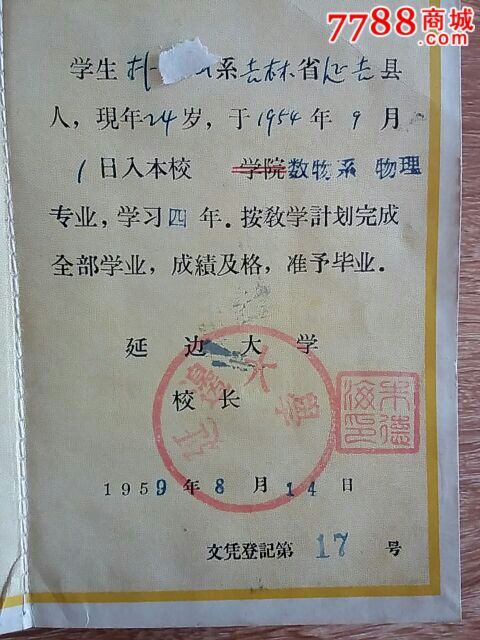 7788商城
学生 朴 系吉林省延吉县
人，現年24岁，于1954年9月
1日入本校 学院数物系 物理
专业，学习四年．按敎学計划完成
全部学业，成績及格，准予毕业．
延边大学
延邊大學
校长
朱德海印
1959年8月14日
文凭登記第17号